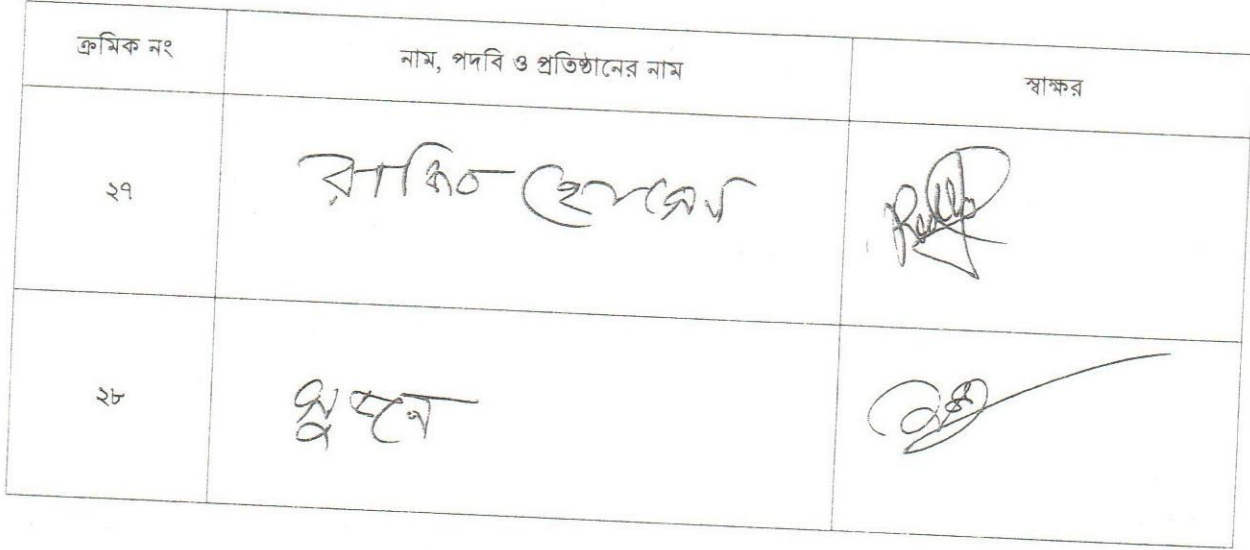 ক্রমিক নং নাম, পদবি ও প্রতিষ্ঠানের নাম স্বাক্ষর
২৭ রাকিব হোসেন
২৮